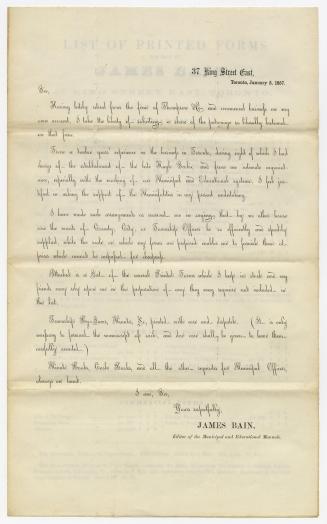 37 King Street East,
Toronto, January 5, 1857.
Sir,
Having lately retired from the firm of Thompson & Co., and commenced business on my
own account, I take the liberty of soliciting a share of the patronage so liberally bestowed
on that firm.
From a twelve years' experience in the business in Toronto, during eight of which I had
charge of the establishment of the late Hugh Scobie, and from an intimate acquaint-
ance, especially with the working of our Municipal and Educational systems, I feel jus-
tified in asking the support of the Municipalities in my present undertaking.
I have made such arrangements as warrant me in saying that by no other house
can the wants of County, City, or Township Officers be so efficiently and speedily
supplied, while the scale on which my forms are prepared enables me to furnish them at
prices which cannot be surpassed for cheapness.
Attached is a List of the several Printed Forms which I keep in stock and my
friends may rely upon me in the preparation of any they may require not included in
this list.
Township By-Laws, Minutes, &c., printed with care and dispatch. (It is only
necessary to forward the manuscript of such, and due care shall be given to have them
carefully executed.)
Minute Books, Cash Books, and all the other requisites for Municipal Officers,
always on hand.
I am, Sir,
Yours respectfully,
JAMES BAIN,
Editor of the Municipal and Educational Manuals.
LIST OF PRINTED FORMS